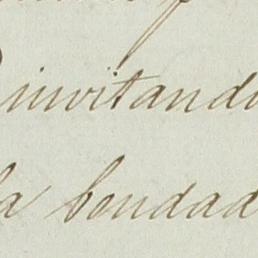 invitando
la bondad